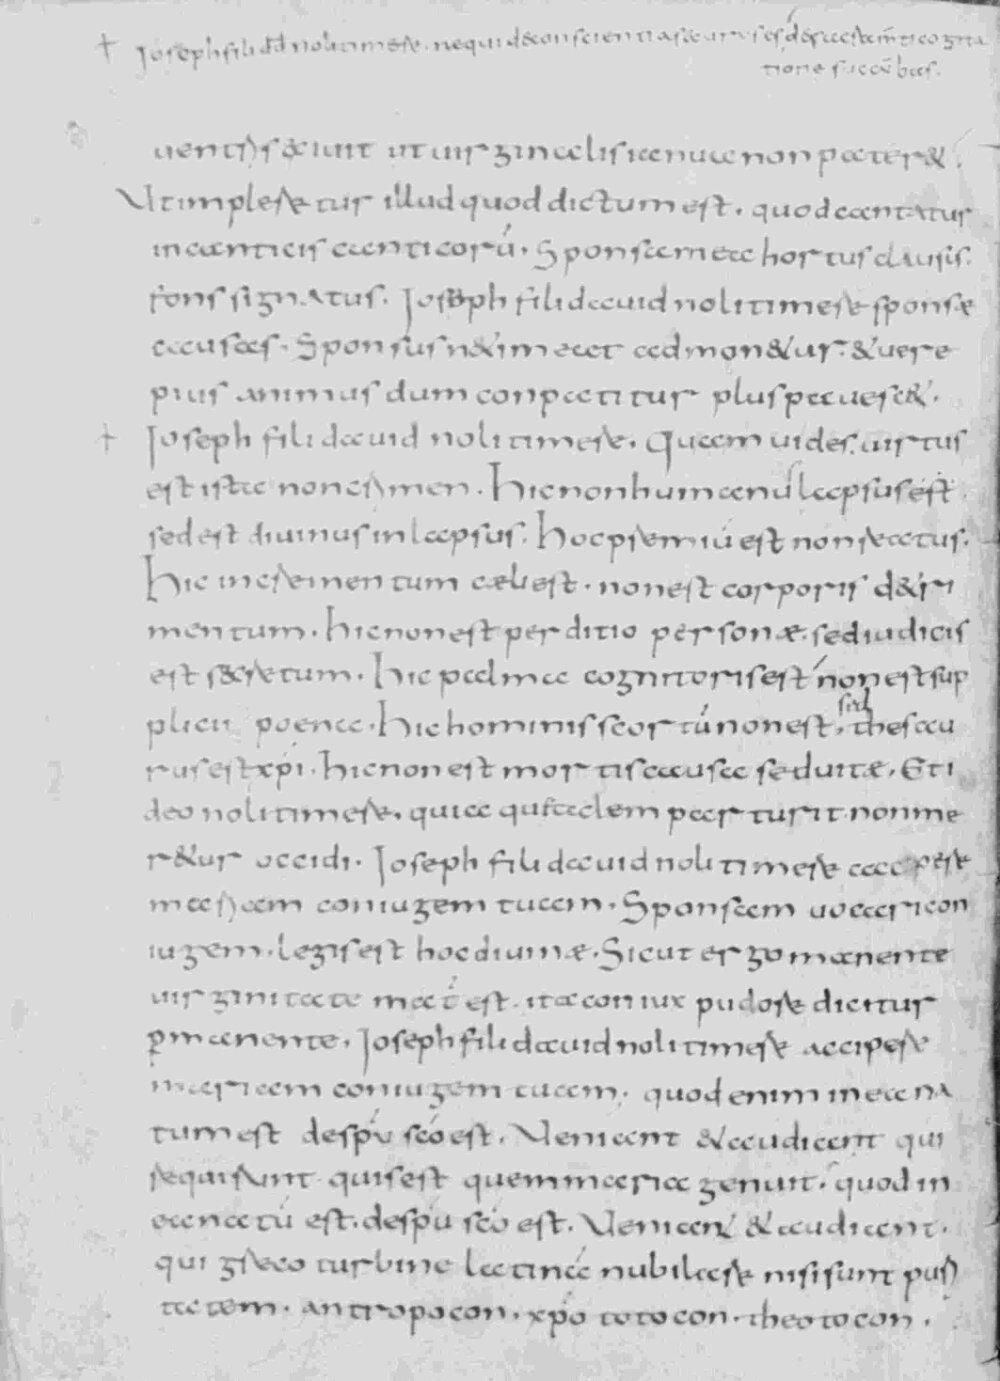 † Ioseph fili dd noli timere. ne quid & conscientia securus es, de
tione succūbas.
uentris exiuit ut uirginalis ianua non pater&.
Ut impleretur illud quod dictum est. quod cantatur
in canticis canticorū. Sponsa mea hortus clausis.
fons signatus. Ioseph fili dauid noli timere sponsæ
accusas. Sponsus n& ad mon&ur. & uere
pius animus dum conpatitur plus paues&.
† Ioseph fili dauid noli timere. Quam uides. uirtus
est ista non crimen. Hic non humanus lapsus est
sed est diuinus inlapsus. Hoc premiū est non reatus.
Hic incrementum cæli est. non est corporis d&ri
mentum. hic non est perditio personæ. sed iudicis
est s&cretum. Hic palma cognitoris est non est sup
plicii poena. Hic hominis scortū non est, sed thesau
rus est xp̄i. hic non est mortis causa sed uitæ. Et i
deo noli timere. quia qui talem parturit non me
r&ur occidi. Ioseph fili dauid noli timere accipere
mariam coniugem tuam. Sponsam uocari con
iugem. legis est hoc diuinæ. Sicut ergo manente
uirginitate mat̄ est. ita coniux pudore dicitur
p̱manente. Ioseph fili dauid noli timere accipere
mariam coniugem tuam. quod enim in ea na
tum est de spū sc̄o est. Ueniant & audiant qui
requirunt quis est quem maria genuit. quod in
ea natū est. de spū sc̄o est. Ueniant & audiant.
qui greco turbine latinā nubilare nisi sunt puri
tatem. antropocon. xp̄o totocon. theotocon.